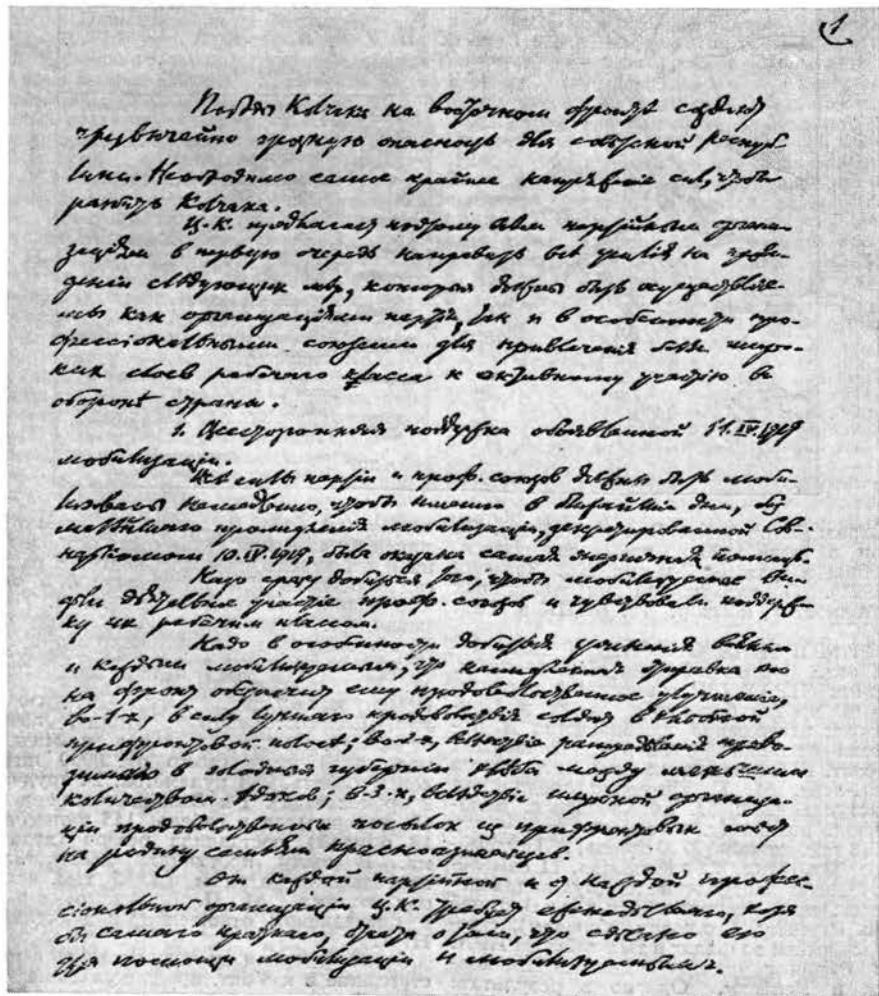 1
Победы Колчака на восточном фронте создают
чрезвычайно грозную опасность для советской респуб-
лики. Необходимо самое крайнее напряжение сил, чтобы
разбить Колчака.
Ц.К. предлагает поэтому всем партийным органи-
зациям в первую очередь направить все усилия на прове-
дение следующих мер, которые должны быть осуществляе-
мы как организациями партии, так и в особенности про-
фессиональными союзами для привлечения более широ-
ких слоев рабочего класса к активному участию в
обороне страны.
1. Всесторонняя поддержка объявленной 11.IV.1919
мобилизации.
Все силы партии и проф. союзов должны быть моби-
лизованы немедленно, чтобы именно в ближайшие дни, без
малейшего промедления мобилизации, декретированной Сов-
наркомом 10.IV.1919, была оказана самая энергичная помощь.
Надо сразу добиться того, чтобы мобилизуемые ви-
дели деятельное участие проф. союзов и чувствовали поддерж-
ку их рабочим классом.
Надо в особенности добиться уяснения всяким
и каждым мобилизуемым, что немедленная отправка его
на фронт обеспечит ему продовольственное улучшение,
во-1-х, в силу лучшего продовольствия солдат в хлебной
прифронтовой полосе; во-2-х, вследствие распределения приво-
зимого в голодные губернии хлеба между меньшим
количеством едоков; в-3-х, вследствие широкой организа-
ции продовольственных посылок из прифронтовых мест
на родину семьям красноармейцев.
От каждой партийной и от каждой професс-
сиональной организации Ц.К. требует еженедельного, хотя
бы самого краткого, отчета о том, что сделано ею
для помощи мобилизации и мобилизуемым.